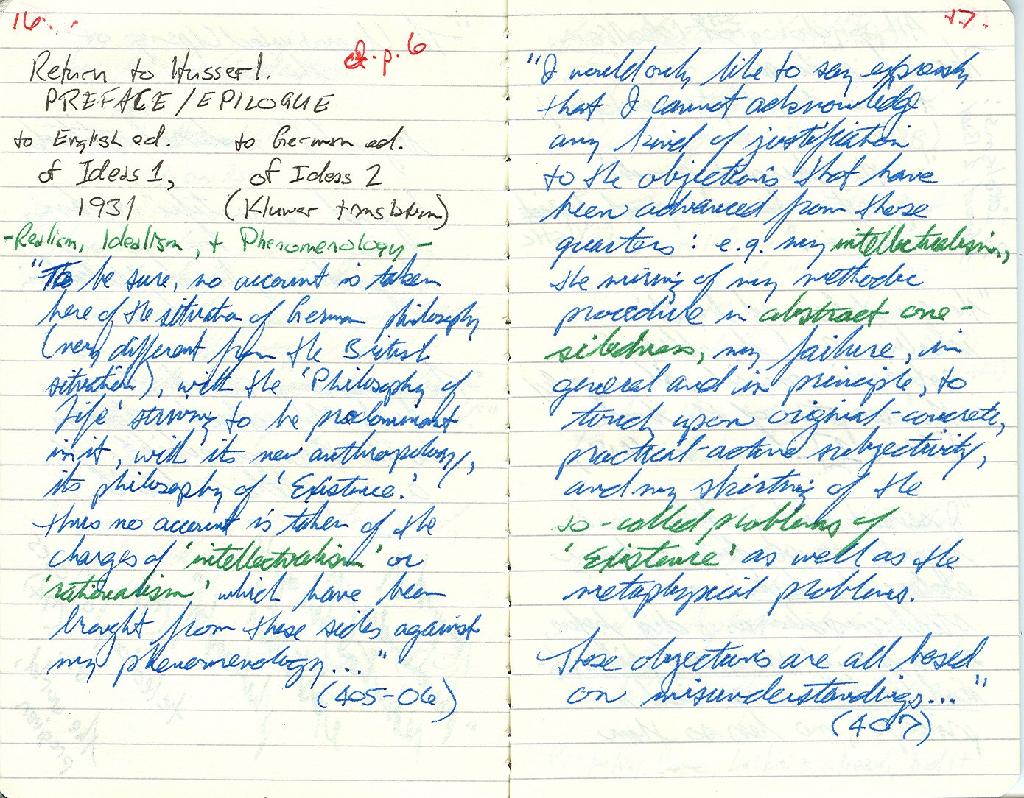 16.
cf. p. 6
Return to Husserl.
PREFACE/EPILOGUE
to English ed. to German ed.
of Ideas 1, of Ideas 2
1931 (Kluwer translation)
- Realism, Idealism, + Phenomenology -
"To be sure, no account is taken
here of the situation of German philosophy
(very different from the British
situation), with the 'Philosophy of
Life' striving to be predominant
in it, with its new anthropology,
its philosophy of 'Existence.'
Thus no account is taken of the
charges of 'intellectualism' or
'rationalism' which have been
brought from these sides against
my phenomenology..."
(405-06)
17.
"I would only like to say expressly
that I cannot acknowledge
any kind of justification
to the objections that have
been advanced from these
quarters: e.g. my intellectualism,
the miring of my methodic
procedure in abstract one-
sidedness, my failure, in
general and in principle, to
touch upon original-concrete,
practical-active subjectivity,
and my skirting of the
so-called problems of
'Existence' as well as the
metaphysical problems.
These objections are all based
on misunderstandings..."
(407)